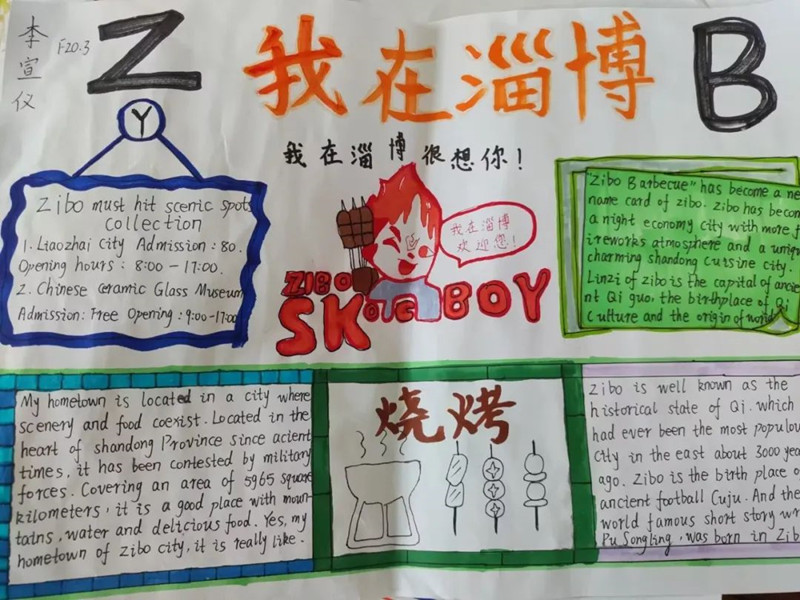 李宣仪
F20.3
Z
我在淄博
B
Y
我在淄博很想你!
Zibo must hit scenic spots
Collection
1. Liaozhai City Admission: 80.
Opening hours: 8:00 - 17:00.
2. Chinese ceramic Glass Museum
Admission: Free Opening: 9:00-17:00
我在淄博
欢迎您!
ZIBO
SKate BOY
"Zibo Barbecue" has become a ne
name card of zibo. zibo has becom
a night economy city with more f
ireworks atmosphere and a uniqu
charming shandong cuisine city.
Linzi of zibo is the capital of ancie
nt Qi guo, the birthplace of Qi
culture and the origin of world
My hometown is located in a city where
scenery and food coexist. Located in the
heart of shandong Province since acient
times, it has been contested by military
forces. Covering an area of 5965 square
kilometers, it is a good place with moun-
tains, water and delicious food. Yes, my
hometown of zibo city, it is really like.
烧烤
Zibo is well known as the
historical state of Qi. which
had ever been the most populou
city in the east about 3000 yea
ago. Zibo is the birth place o
ancient football Cuju. And the
world famous short story wr
Pu Songling, was born in Zib